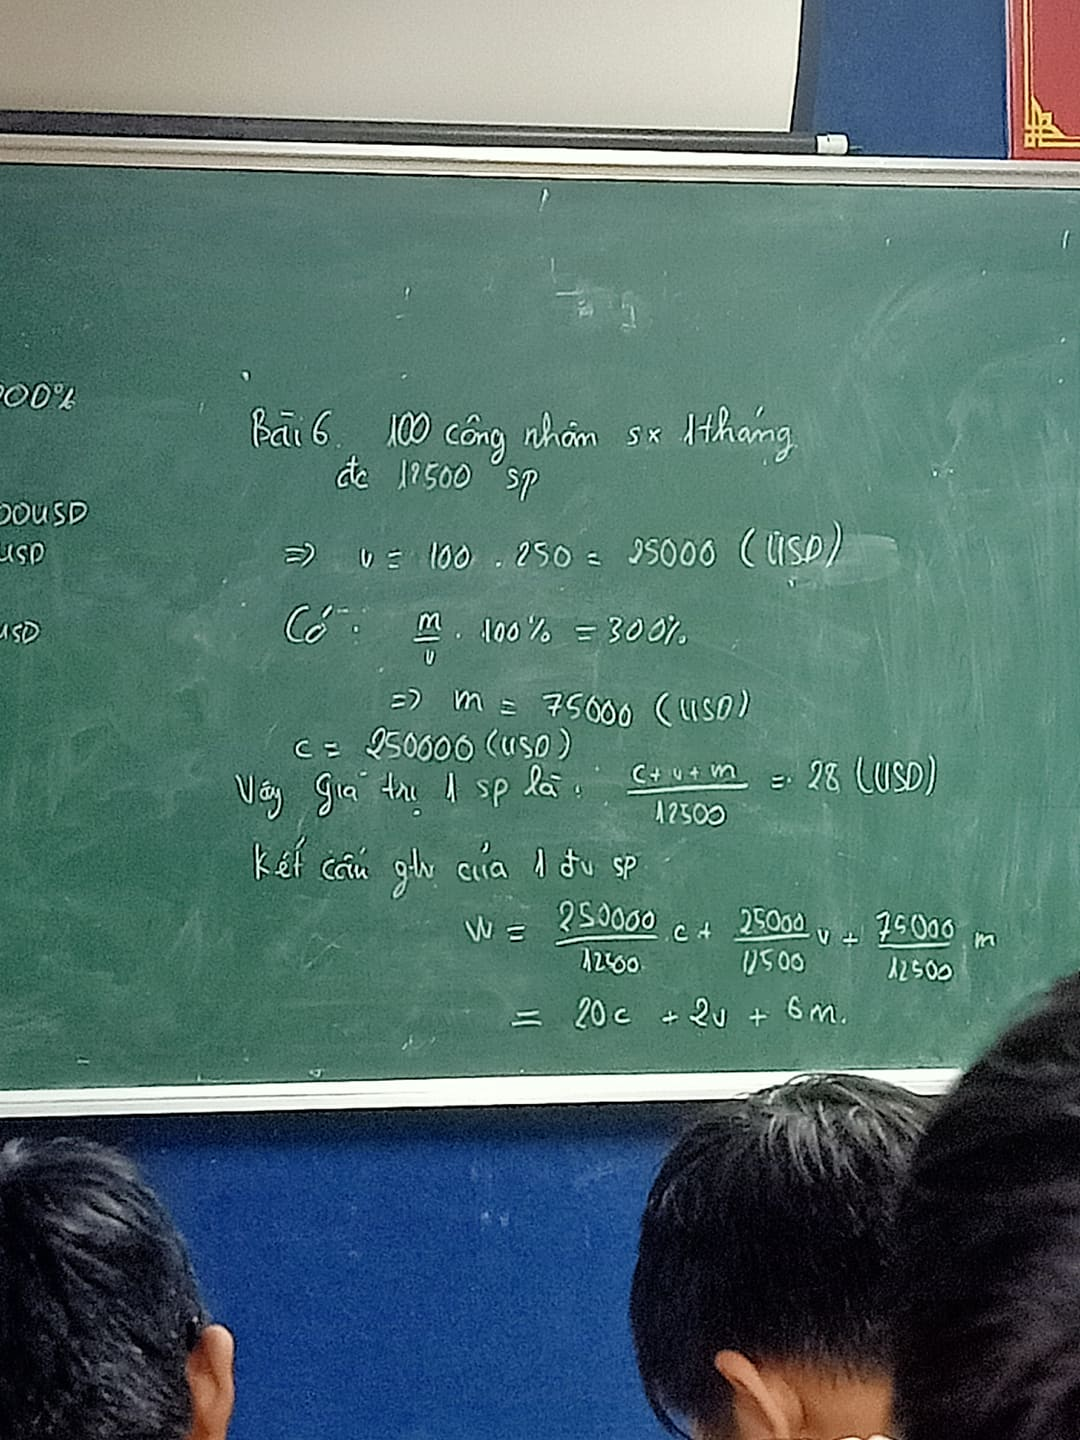 00%
00USD
USD
USD
Bài 6. 100 công nhân sx 1 tháng
đc 12500 sp
=> v = 100 . 250 = 25000 (USD)
Có: m/v . 100% = 300%
=> m = 75000 (USD)
c = 250000 (USD)
Vậy giá trị 1 sp là: c+v+m/12500 = 28 (USD)
Kết cấu gtr của 1 đv sp
W = 250000/12500 c + 25000/12500 v + 75000/12500 m
= 20c + 2v + 6m.